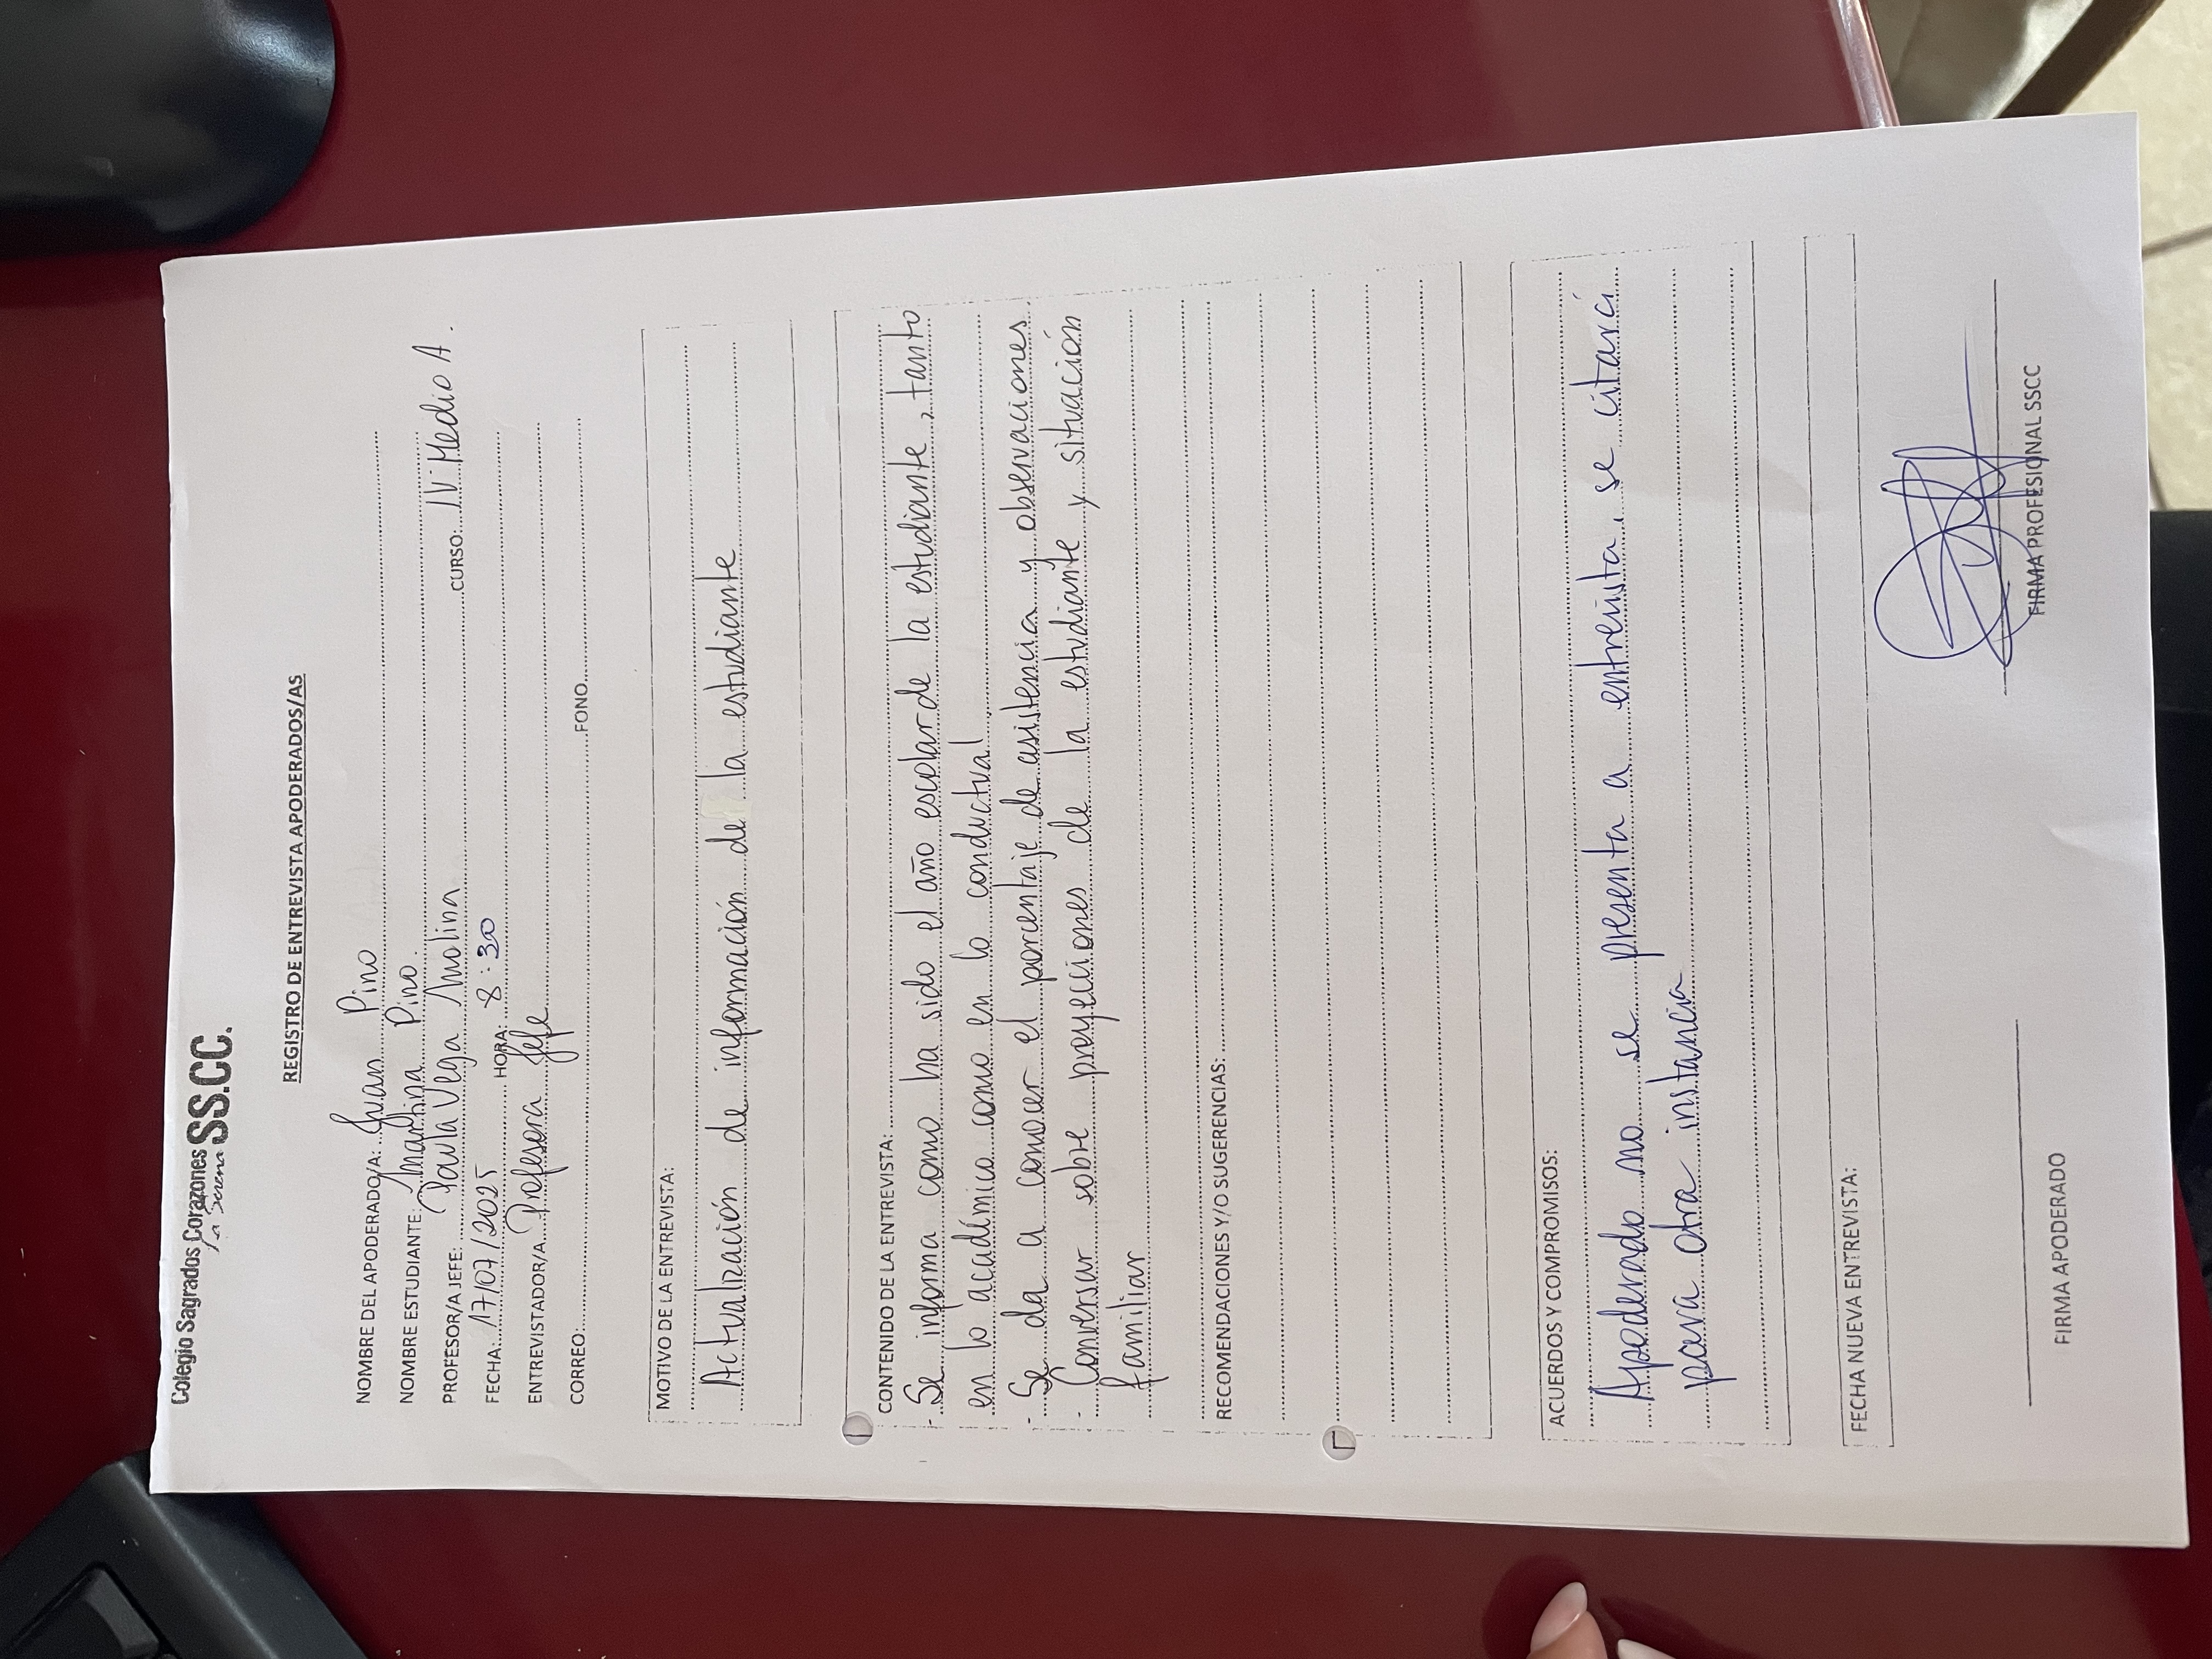 Colegio Sagrados Corazones SS.CC.
La Serena
REGISTRO DE ENTREVISTA APODERADOS/AS
NOMBRE DEL APODERADO/A: Juan Pino
NOMBRE ESTUDIANTE: Martina Pino.
PROFESOR/A JEFE: Paula Vega Molina CURSO: IV Medio A.
FECHA 17/07/2025 HORA: 8:30
ENTREVISTADOR/A Profesora Jefe
CORREO: FONO
MOTIVO DE LA ENTREVISTA:
Actualización de información de la estudiante
CONTENIDO DE LA ENTREVISTA:
- Se informa como ha sido el año escolar de la estudiante, tanto
en lo académico como en lo conductual.
- Se da a conocer el porcentaje de asistencia y observaciones.
- Conversar sobre proyecciones de la estudiante y situación
familiar
RECOMENDACIONES Y/O SUGERENCIAS:
ACUERDOS Y COMPROMISOS:
Apoderado no se presenta a entrevista, se citará
para otra instancia
FECHA NUEVA ENTREVISTA:
FIRMA APODERADO FIRMA PROFESIONAL SSCC